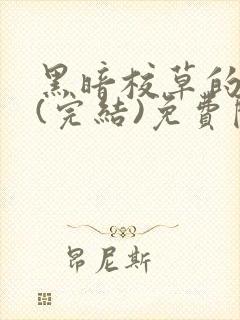 黑暗校草的
(完結)免費
昂尼斯